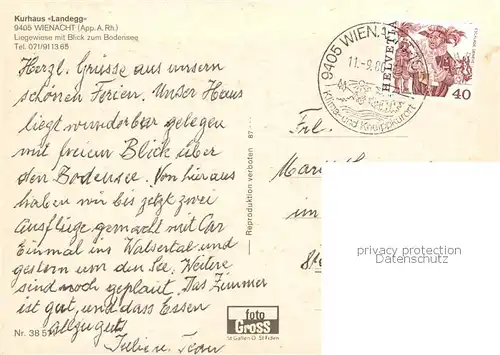 Kurhaus «Landegg»
9405 WIENACHT (App. A. Rh.)
Liegewiese mit Blick zum Bodensee
Tel. 071/91 13 65
Herzl. Grüsse aus unsern
schönen Ferien. Unser Haus
liegt wunderbar gelegen
mit freiem Blick über
den Bodensee. Von hieraus
haben wir bis jetzt zwei
Ausflüge gemacht mit Car
Einmal ins Walsertal und
gestern um den See. Weitere
sind noch geplant. Das Zimmer
ist gut, und dass Essen
allzugut
Julie u. Jean
Nr. 38 5
Reproduktion verboten 87
foto
GROSS
St Gallen O. St Fiden
9405 WIEN
11.-9.
Klima- und Kneippkurort
HELVETIA
40
Frl.
Mari
im
privacy protection